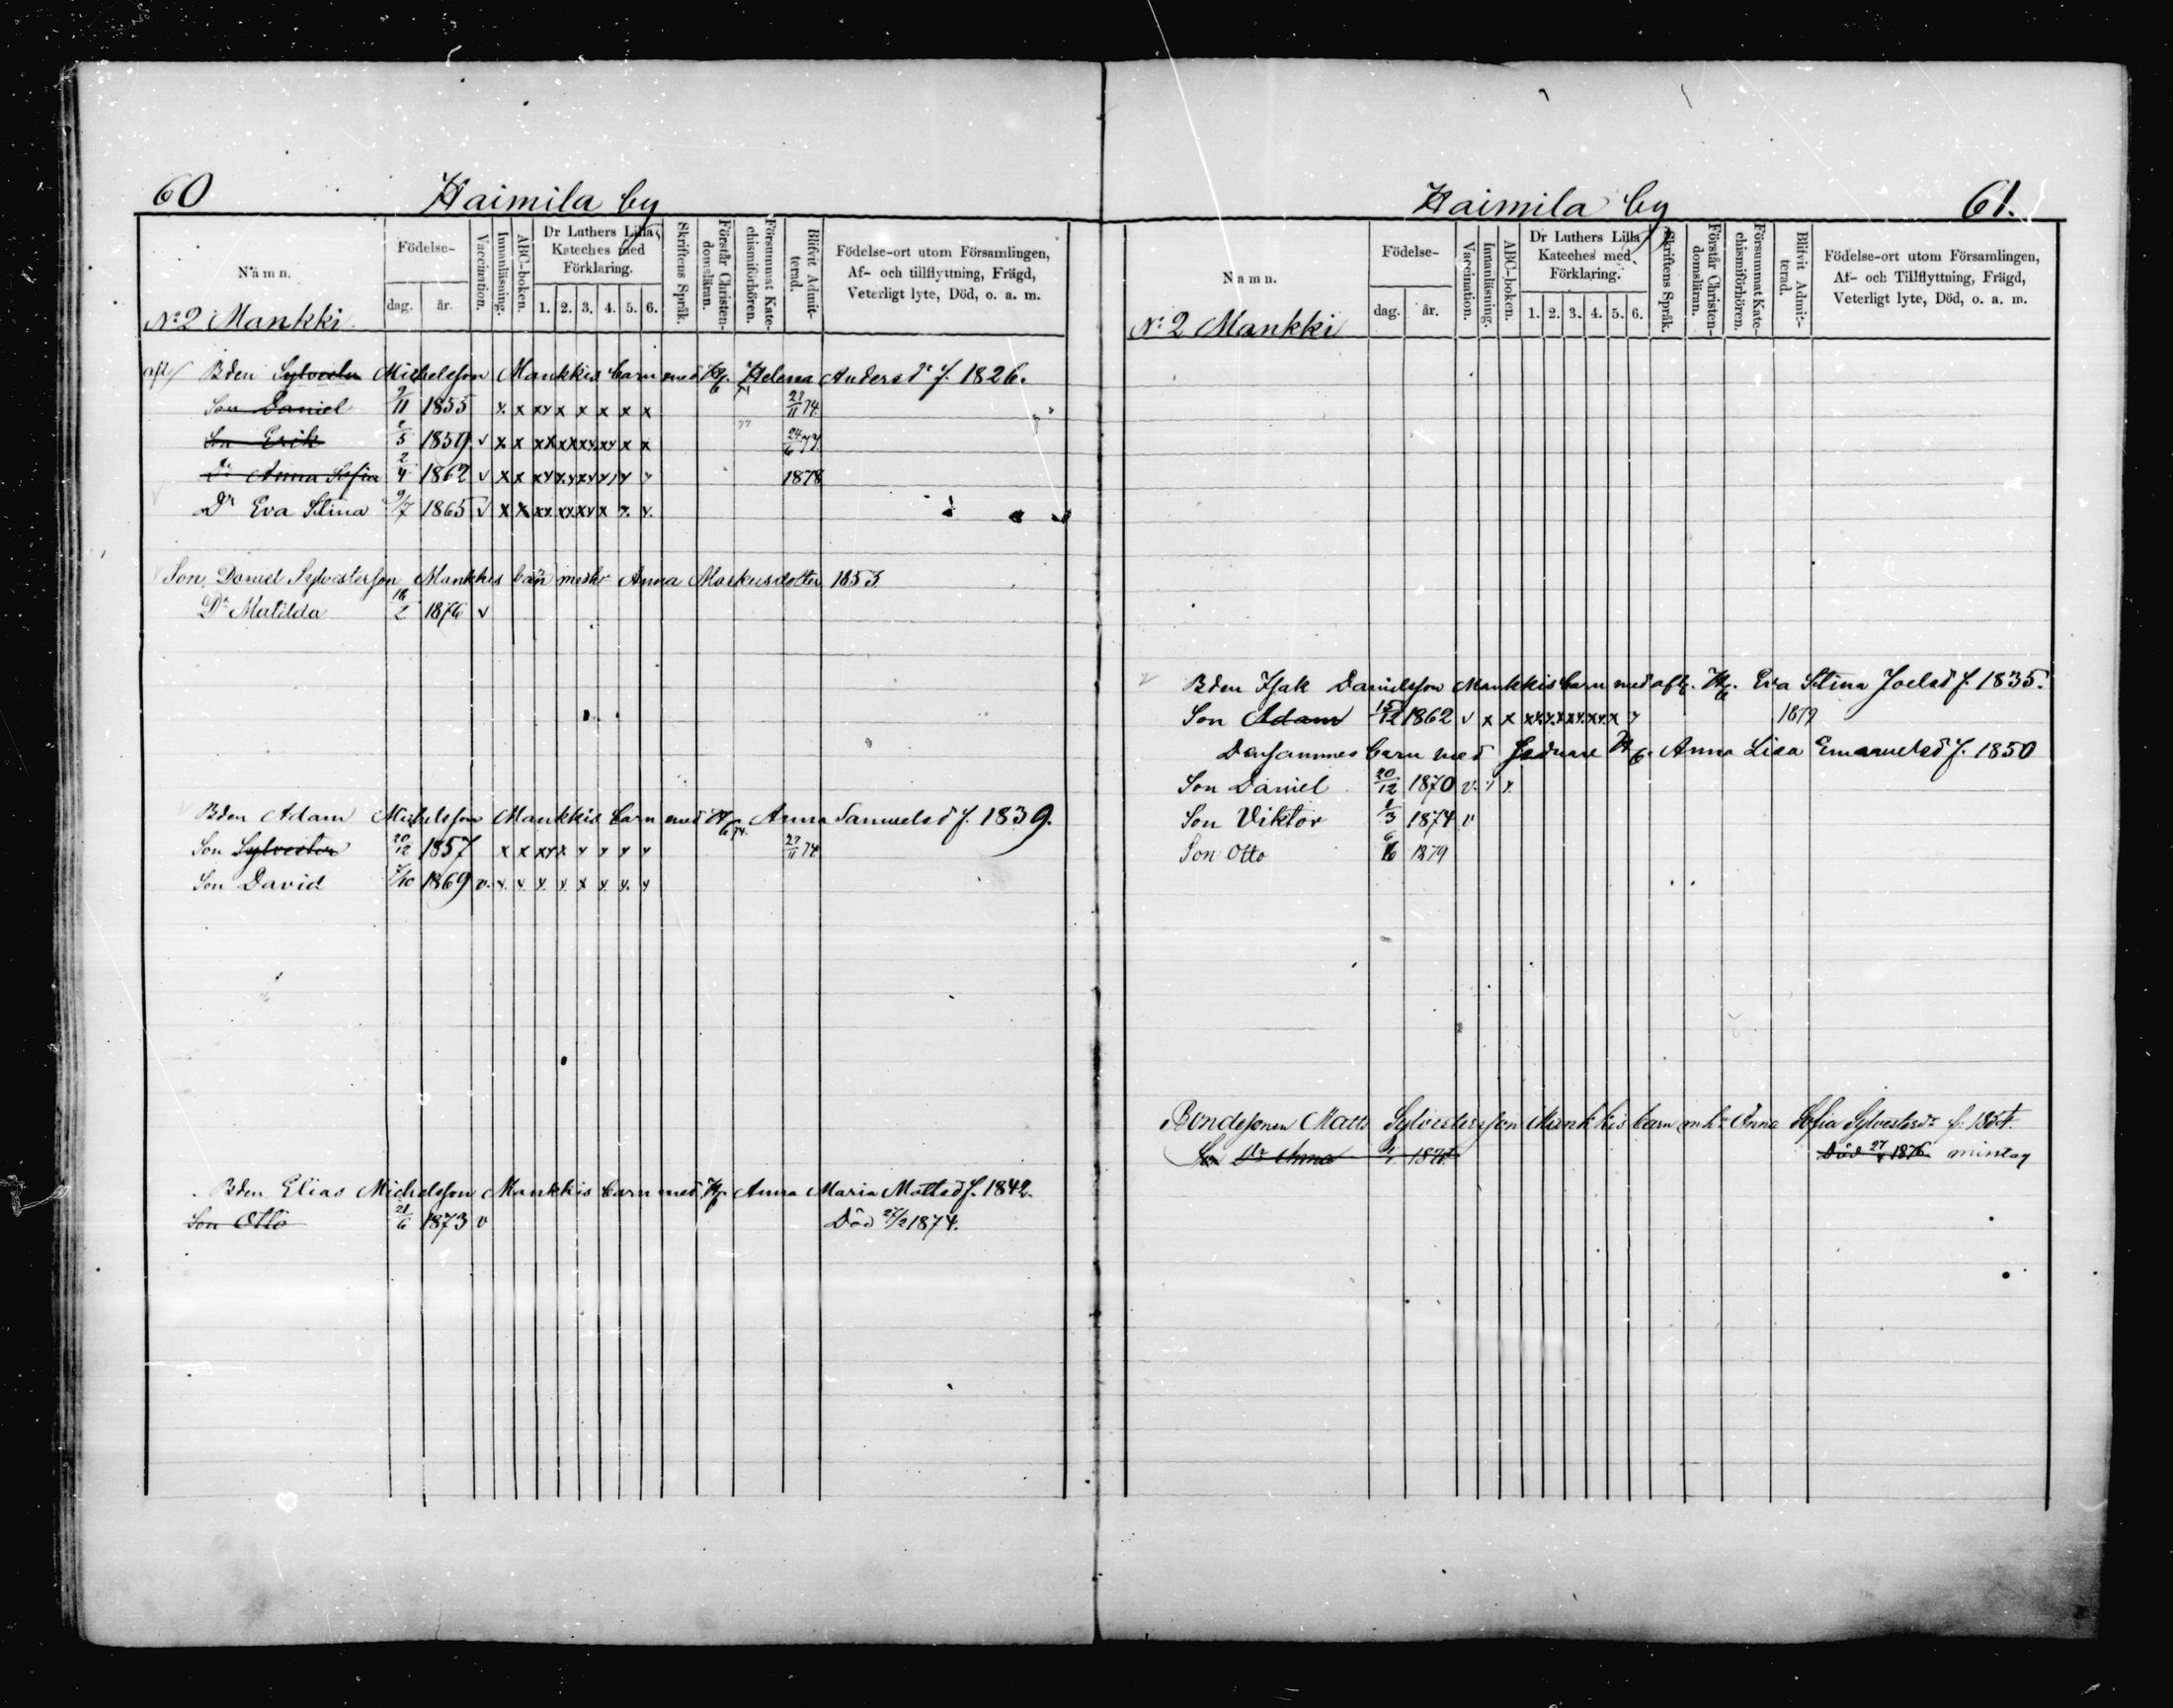 60 Haimila by
Namn. Födelse- Vaccination. Innanläsning. ABC-boken. Dr Luthers Lilla Kateches med Förklaring. Skriftens Språk. Förstår Christendomsläran. Försummat Katechismiförhören. Blifvit Admitterad. Födelse-ort utom Församlingen, Af- och tillflyttning, Frägd, Veterligt lyte, Död, o. a. m.
dag. år. 1. 2. 3. 4. 5. 6.
No 2 Mankki
Bden Sylvester Michelsson Mankkis barn med H. Helena Andersdr f. 1826.
Son Daniel 9/11 1855 x x xx x x x x x 27/11 74.
Son Erik 2/5 1859 v x x x x x x 24/6 77.
Dr Anna Sofia 2/4 1862 v x x 1878
Dr Eva Stina 9/7 1865 v x x
Son Daniel Sylvestersson Mankkis barn med hr Anna Markusdotter 1853
Dr Matilda 18/2 1876 v
Bden Adam Michelsson Mankkis barn med H. Anna Samuelsd f. 1839.
Son Sylvester 20/12 1857 x x 27/11 74
Son David 7/10 1869 v.
Bden Elias Michelsson Mankkis barn med H. Anna Maria Mattsd f. 1842.
Son Otto 21/6 1873 v Död 27/2 1874.
Haimila by 61.
Namn. Födelse- Vaccination. Innanläsning. ABC-boken. Dr Luthers Lilla Kateches med Förklaring. Skriftens Språk. Förstår Christendomsläran. Försummat Katechismiförhören. Blifvit Admitterad. Födelse-ort utom Församlingen, Af- och Tillflyttning, Frägd, Veterligt lyte, Död, o. a. m.
dag. år. 1. 2. 3. 4. 5. 6.
No 2 Mankki
Bden Isak Danielsson Mankkis barn med afl. H. Eva Stina Joelsd f. 1835.
Son Adam 15/12 1862 v x x 1879
Densammes barn med sednare H. Anna Lisa Emanuelsd f. 1850
Son Daniel 20/12 1870 v.
Son Viktor 1/3 1874 v
Son Otto 1879
Bondesonen Matts Sylvestersson Mankkis barn m. hr Anna Sofia Sylvestersdr f. 1854.
Dr Anna Död 1876